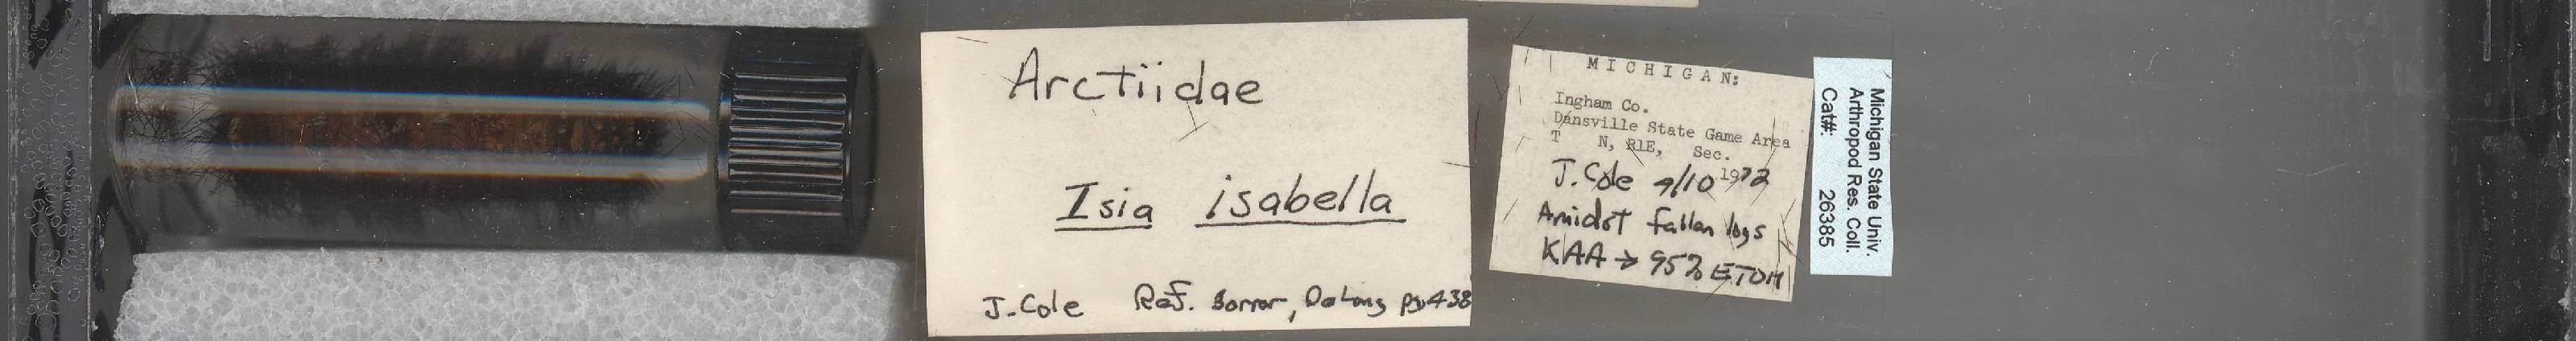 Arctiidae
Isia isabella
J. Cole Ref. Borror, DeLong pg 438
MICHIGAN:
Ingham Co.
Dansville State Game Area
T N, R1E, Sec.
J. Cole 9/10 1972
Amidst fallen logs
KAA → 95% ETOH
Michigan State Univ.
Arthropod Res. Coll.
Cat#: 26385